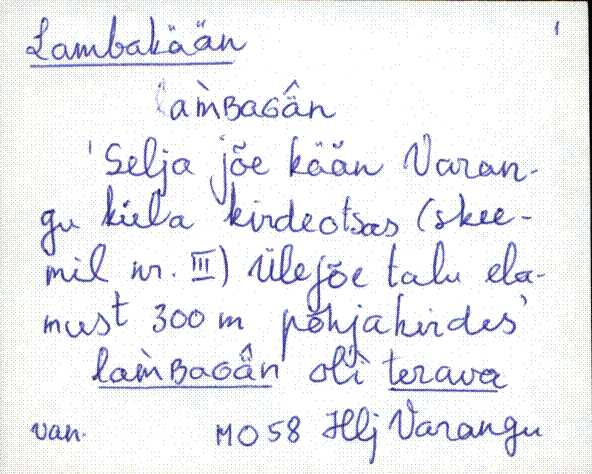 Lambakään 1
lam̀ʙaɢân
'Selja jõe kään Varan-
gu küla kirdeotsas (skee-
mil nr. III) Ülejõe talu ela-
must 300 m põhjakirdes'
lam̀ʙaɢân oĺi terava
van. MO 58 Hlj Varangu